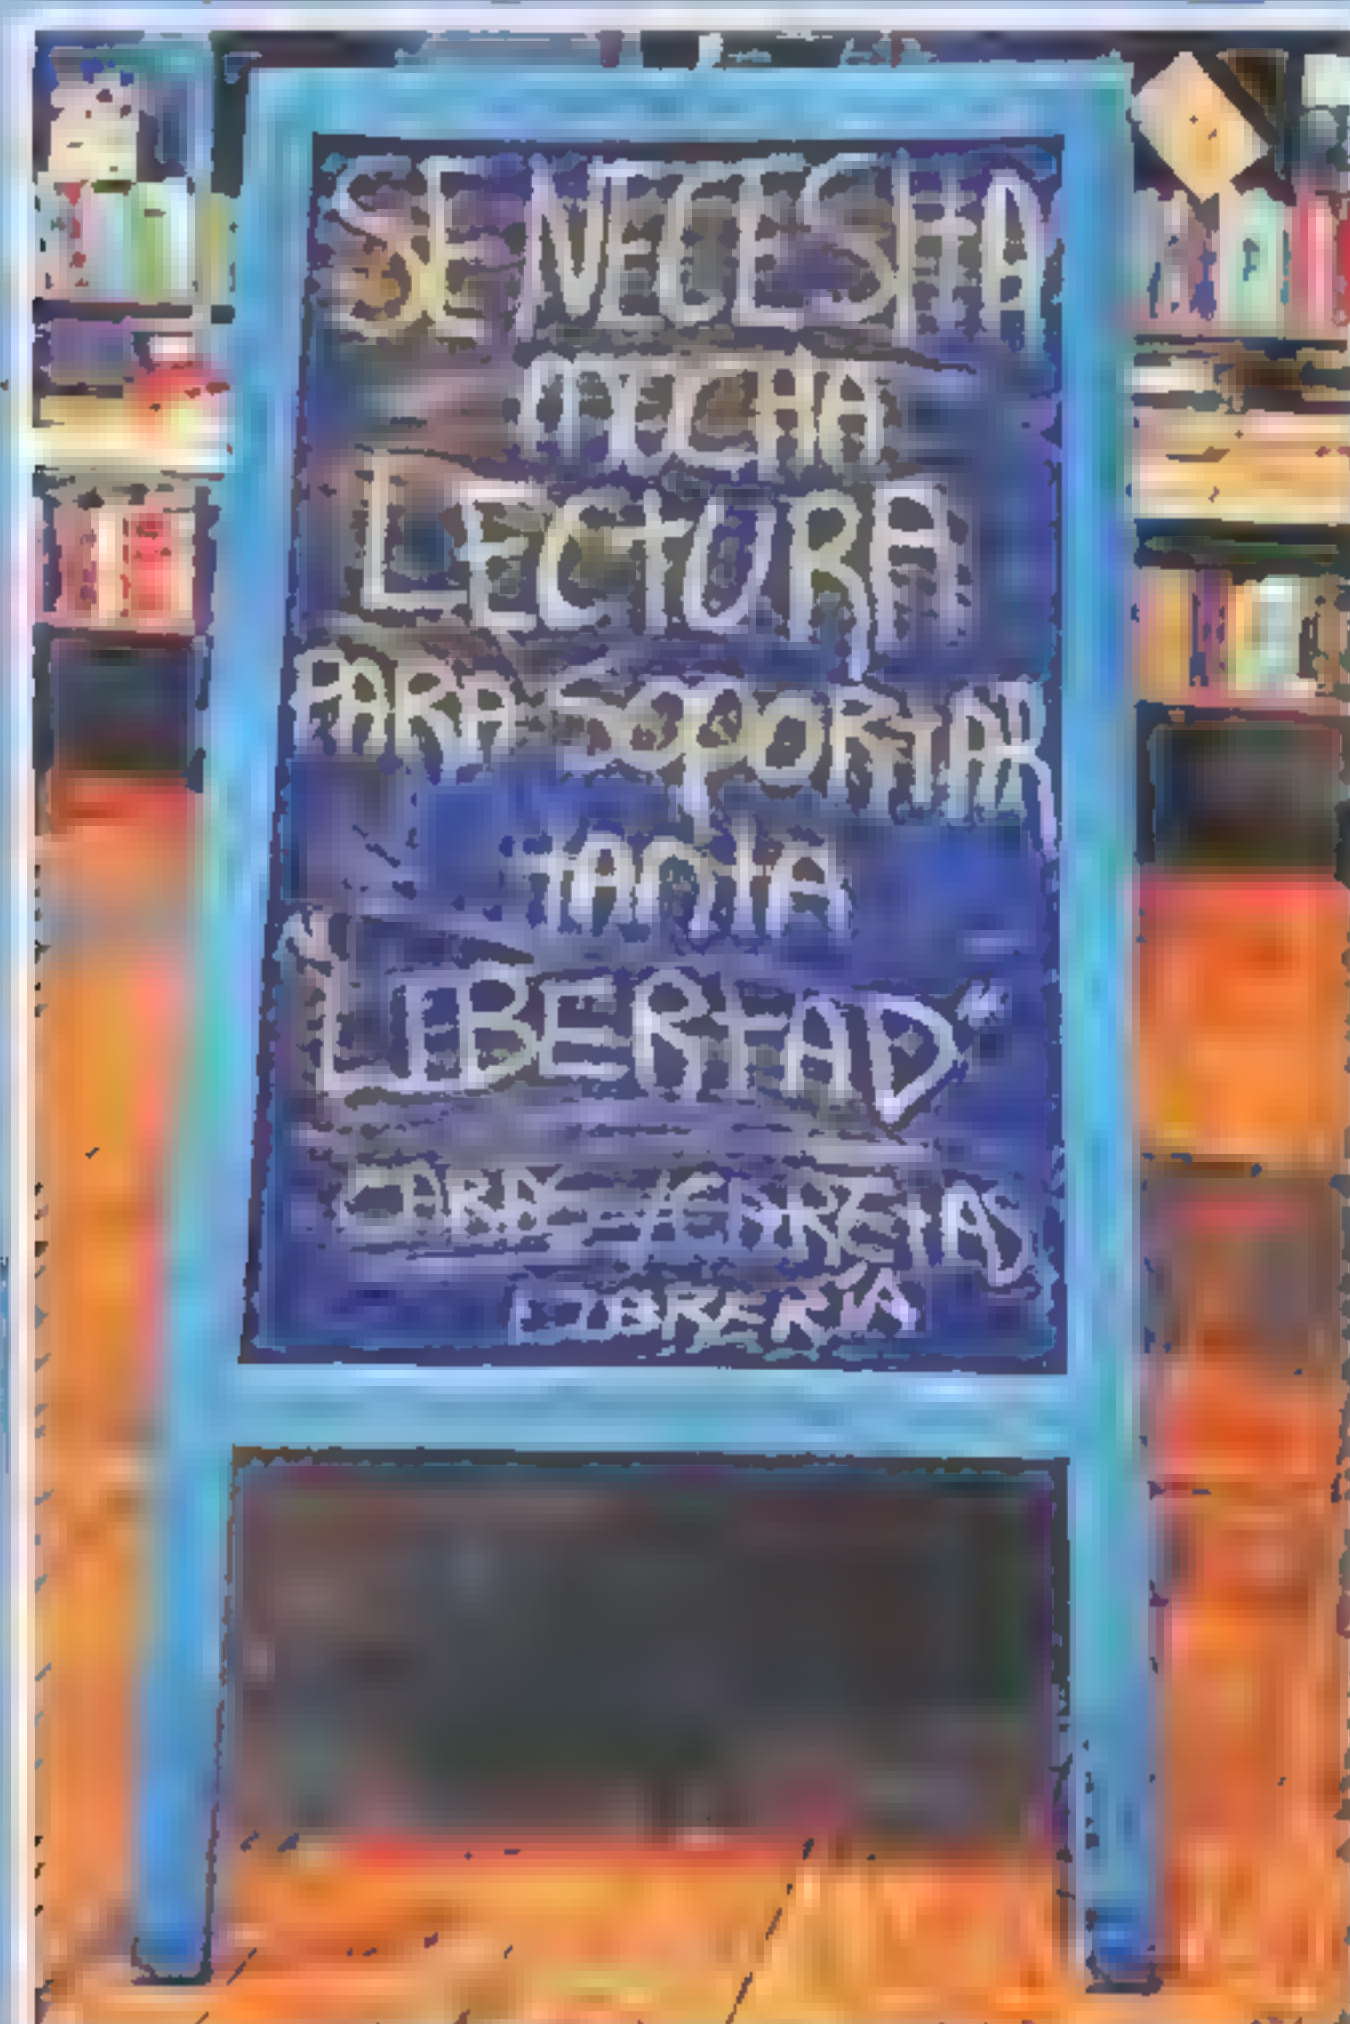 SE NECESITA
MUCHA
LECTURA
PARA SOPORTAR
TANTA
LIBERTAD"
CARAS Y CARETAS
LIBRERÍA